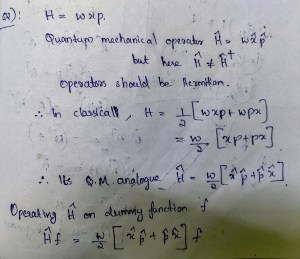 Q): H = wxp.
Quantum mechanical operator Ĥ = wx̂p̂
but here Ĥ ≠ Ĥ†
operators should be Hermitian.
∴ In classical, H = 1/2 [wxp + wpx]
= w/2 [xp + px]
∴ Its Q.M. analogue Ĥ = w/2 [x̂p̂ + p̂x̂]
Operating Ĥ on dummy function f
Ĥf = w/2 [x̂p̂ + p̂x̂] f